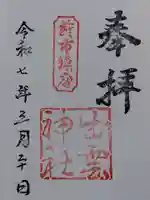 奉拝
出雲
神社
令和七年三月二十日